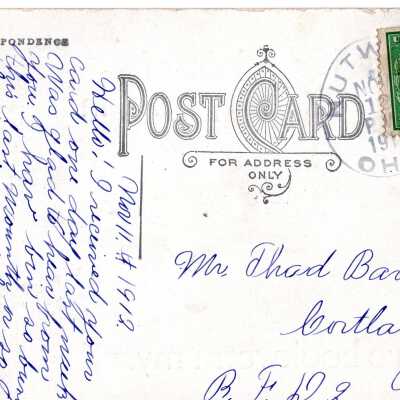 PONDENCE
POST CARD
FOR ADDRESS
ONLY
Nov. 11. 1912
Hello! I received your
card one day last week
Was glad to hear from
you I have been so
this last month
Mr. Thad Bar
Cortla
R. F. D. 2
OH